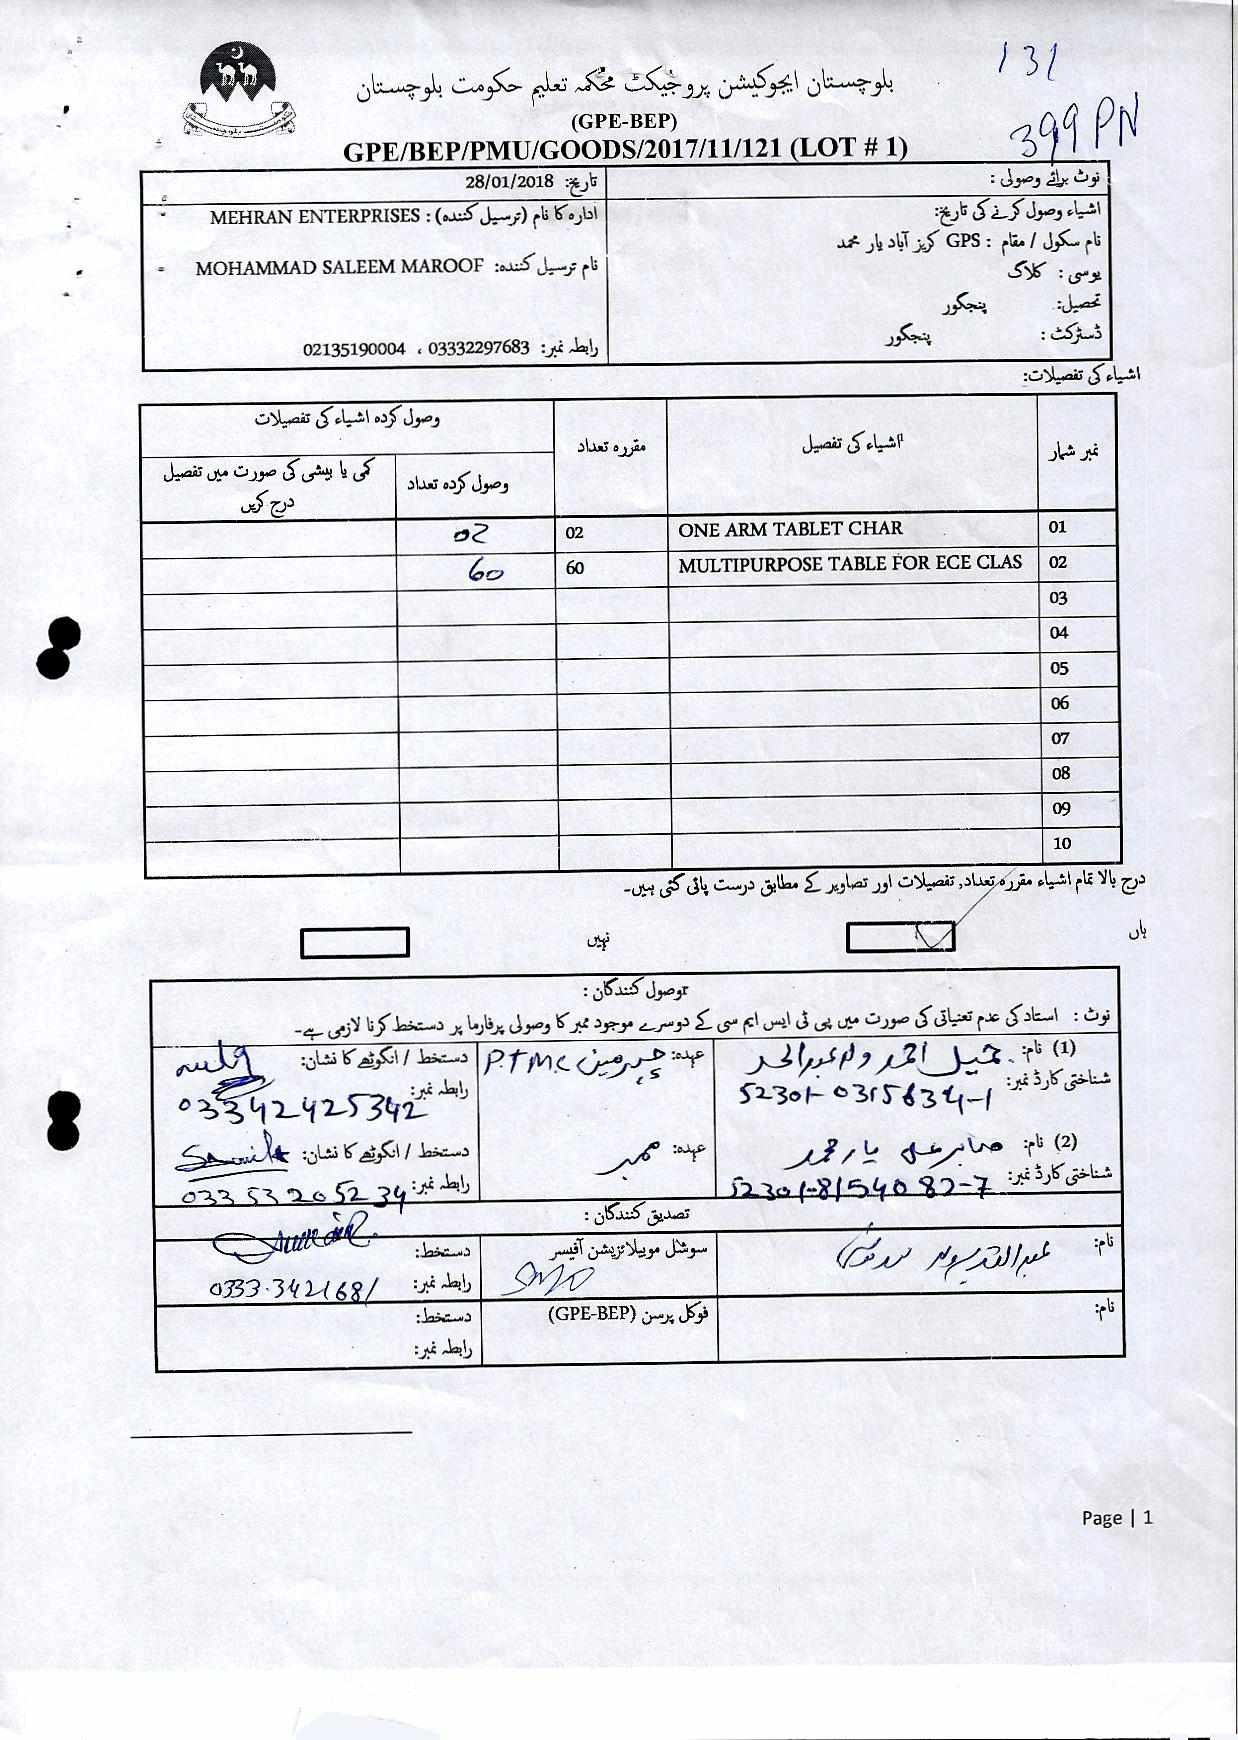 131
399 PN
بلوچستان ایجوکیشن پروجیکٹ محکمہ تعلیم حکومت بلوچستان
(GPE-BEP)
GPE/BEP/PMU/GOODS/2017/11/121 (LOT # 1)
نوٹ برائے وصولی :
تاریخ: 28/01/2018
اشیاء وصول کرنے کی تاریخ:
نام سکول / مقام : GPS کریز آباد یار محمد
یوسی : کلاگ
تحصیل: پنجگور
ڈسٹرکٹ : پنجگور
ادارہ کا نام (ترسیل کنندہ) : MEHRAN ENTERPRISES
نام ترسیل کنندہ: MOHAMMAD SALEEM MAROOF
رابطہ نمبر: 03332297683 ، 02135190004
اشیاء کی تفصیلات:
نمبر شمار اشیاء کی تفصیل مقررہ تعداد وصول کردہ اشیاء کی تفصیلات
وصول کردہ تعداد کمی یا بیشی کی صورت میں تفصیل درج کریں
01 ONE ARM TABLET CHAR 02 02
02 MULTIPURPOSE TABLE FOR ECE CLAS 60 60
03
04
05
06
07
08
09
10
درج بالا تمام اشیاء مقررہ تعداد, تفصیلات اور تصاویر کے مطابق درست پائی گئی ہیں۔
ہاں نہیں
وصول کنندگان :
نوٹ : استاد کی عدم تعنیاتی کی صورت میں پی ٹی ایس ایم سی کے دوسرے موجود ممبر کا وصولی پرفارما پر دستخط کرنا لازمی ہے۔
(1) نام: جمیل احمد ولد عبدالاحد عہدہ: چیرمین P.T.M.C دستخط / انگوٹھے کا نشان:
شناختی کارڈ نمبر: 52301-0315634-1 رابطہ نمبر: 03342425342
(2) نام: صابر علی یار محمد عہدہ: ممبر دستخط / انگوٹھے کا نشان:
شناختی کارڈ نمبر: 52301-8154082-7 رابطہ نمبر: 03353205234
تصدیق کنندگان :
نام: سوشل موبیلائزیشن آفیسر دستخط:
SMO رابطہ نمبر: 0333-3421681
نام: فوکل پرسن (GPE-BEP) دستخط:
رابطہ نمبر:
Page | 1